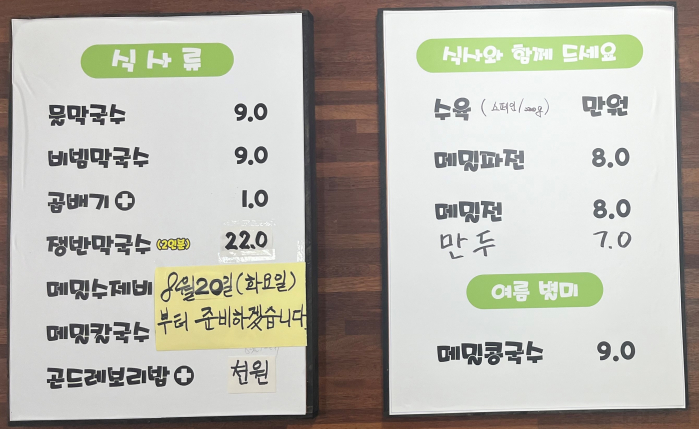 식사류
물막국수 9.0
비빔막국수 9.0
곱배기 + 1.0
쟁반막국수 (2인분) 22.0
메밀수제비
메밀칼국수
8월20일(화요일)
부터 준비하겠습니다
곤드레보리밥 + 천원
식사와 함께 드세요
수육 만원
메밀파전 8.0
메밀전 8.0
만두 7.0
여름 별미
메밀콩국수 9.0